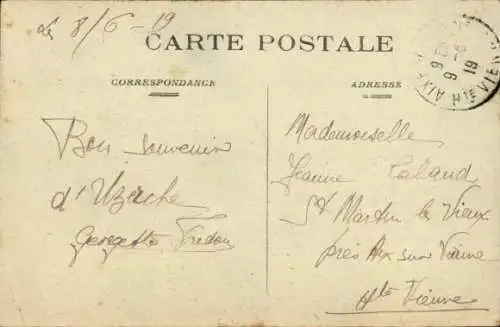 Le 8/6-19
CARTE POSTALE
CORRESPONDANCE
ADRESSE
Bon souvenir
d'Uzerche
Georgette
Mademoiselle
Jeanne
St Martin le Vieux
près Aix sur Vienne
Hte Vienne
9 19
Hte VIENNE